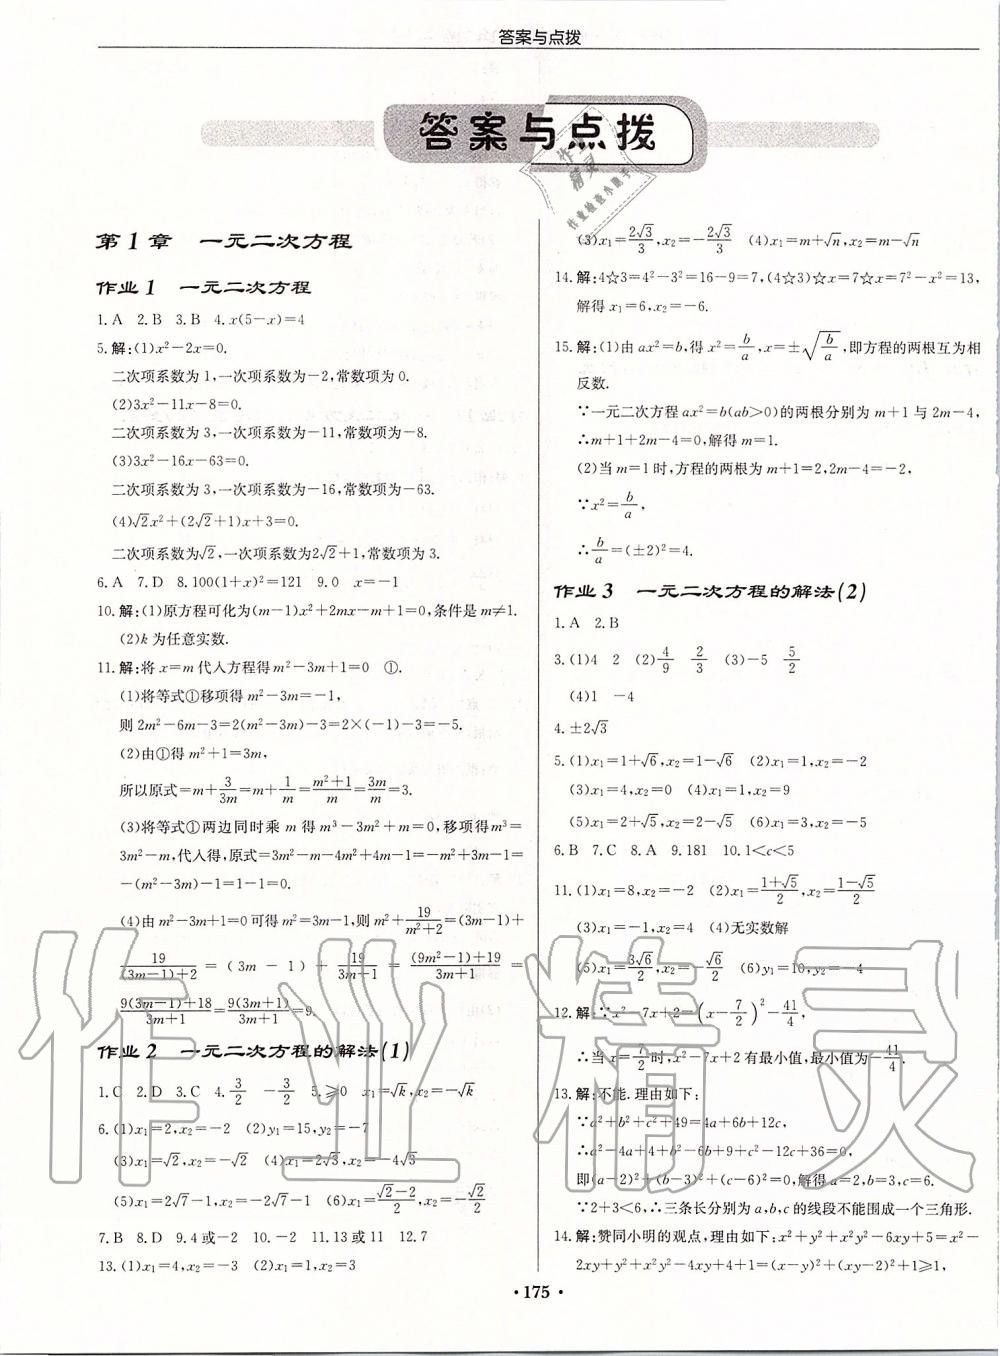 答案与点拨
答案与点拨
第1章 一元二次方程
作业1 一元二次方程
1.A 2.B 3.B 4.x(5-x)=4
5.解:(1)x²-2x=0.
二次项系数为1,一次项系数为-2,常数项为0.
(2)3x²-11x-8=0.
二次项系数为3,一次项系数为-11,常数项为-8.
(3)3x²-16x-63=0.
二次项系数为3,一次项系数为-16,常数项为-63.
(4)√2x²+(2√2+1)x+3=0.
二次项系数为√2,一次项系数为2√2+1,常数项为3.
6.A 7.D 8.100(1+x)²=121 9.0 x=-1
10.解:(1)原方程可化为(m-1)x²+2mx-m+1=0,条件是m≠1.
(2)k为任意实数.
11.解:将x=m代入方程得m²-3m+1=0 ①.
(1)将等式①移项得m²-3m=-1,
则2m²-6m-3=2(m²-3m)-3=2×(-1)-3=-5.
(2)由①得m²+1=3m,
所以原式=m+3/3m=m+1/m=(m²+1)/m=3m/m=3.
(3)将等式①两边同时乘m得m³-3m²+m=0,移项得m³=
3m²-m,代入得,原式=3m²-m-4m²+4m-1=-m²+3m-1=
-(m²-3m)-1=1-1=0.
(4)由m²-3m+1=0可得m²=3m-1,则m²+19/(m²+2)=(3m-1)+
19/((3m-1)+2)=(3m-1)+19/(3m+1)=((9m²-1)+19)/(3m+1)=
(9(3m-1)+18)/(3m+1)=9(3m+1)/(3m+1)=9.
作业2 一元二次方程的解法(1)
1.C 2.D 3.C 4.3/2 -3/2 5.≥0 x₁=√k,x₂=-√k
6.(1)x₁=2,x₂=-2 (2)y₁=15,y₂=-7
(3)x₁=√2,x₂=-√2 (4)x₁=2√3,x₂=-4√3
(5)x₁=2√7-1,x₂=-2√7-1 (6)x₁=(√2-2)/2,x₂=-√2/2
7.B 8.D 9.4或-2 10.-2 11.13或11 12.7
13.(1)x₁=4,x₂=-3 (2)x₁=1,x₂=3
(3)x₁=2√3/3,x₂=-2√3/3 (4)x₁=m+√n,x₂=m-√n
14.解:4☆3=4²-3²=16-9=7,(4☆3)☆x=7☆x=7²-x²=13,
解得x₁=6,x₂=-6.
15.解:(1)由ax²=b,得x²=b/a,x=±√(b/a),即方程的两根互为相
反数.
∵一元二次方程ax²=b(ab>0)的两根分别为m+1与2m-4,
∴m+1+2m-4=0,解得m=1.
(2)当m=1时,方程的两根为m+1=2,2m-4=-2,
∵x²=b/a,
∴b/a=(±2)²=4.
作业3 一元二次方程的解法(2)
1.A 2.B
3.(1)4 2 (2)4/9 2/3 (3)-5 5/2
(4)1 -4
4.±2√3
5.(1)x₁=1+√6,x₂=1-√6 (2)x₁=1,x₂=-2
(3)x₁=4,x₂=0 (4)x₁=1,x₂=9
(5)x₁=2+√5,x₂=2-√5 (6)x₁=3,x₂=-5
6.B 7.C 8.A 9.181 10.1<c<5
11.(1)x₁=8,x₂=-2 (2)x₁=(1+√5)/2,x₂=(1-√5)/2
(3)x₁=-1,x₂=4 (4)无实数解
(5)x₁=3√6/2,x₂=-√6/2 (6)y₁=10,y₂=-4
12.解:∵x²-7x+2=(x-7/2)²-41/4,
∴当x=7/2时,x²-7x+2有最小值,最小值为-41/4.
13.解:不能.理由如下:
∵a²+b²+c²+49=4a+6b+12c,
∴a²-4a+4+b²-6b+9+c²-12c+36=0,
即(a-2)²+(b-3)²+(c-6)²=0,解得a=2,b=3,c=6.
∵2+3<6,∴三条长分别为a,b,c的线段不能围成一个三角形.
14.解:赞同小明的观点,理由如下:x²+y²+x²y²-6xy+5=x²-
2xy+y²+x²y²-4xy+4+1=(x-y)²+(xy-2)²+1≥1,
·175·
作业精灵
作业精灵
作业检查小助手